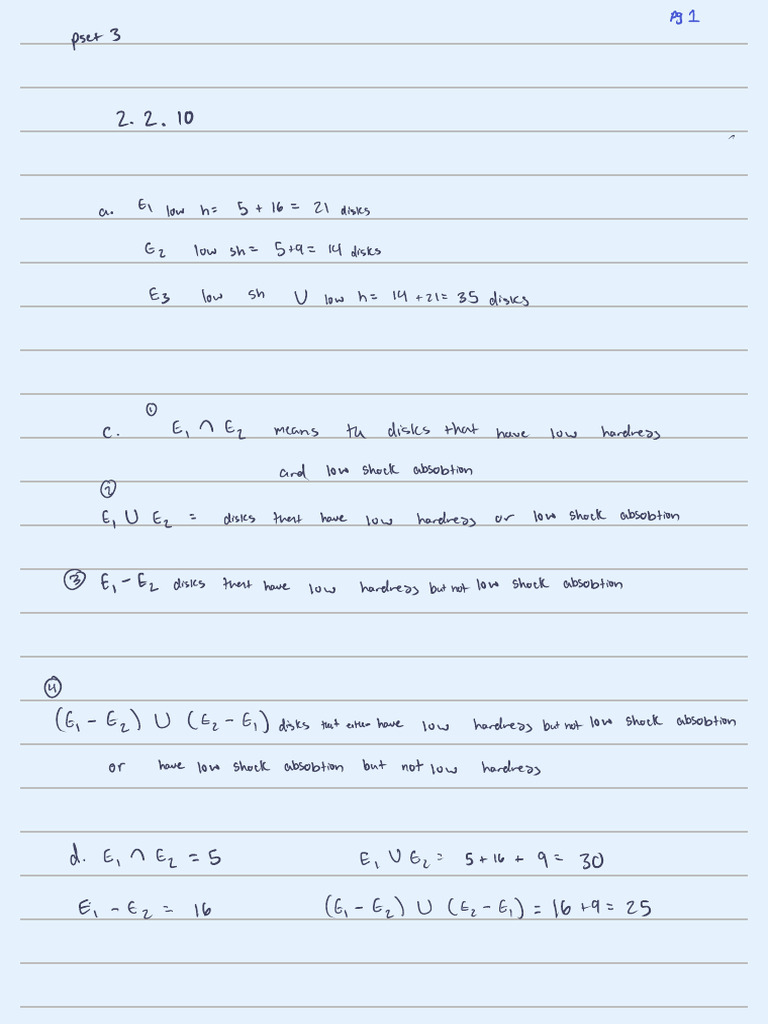 pg 1
pset 3
2. 2. 10
a. E₁ low h = 5 + 16 = 21 disks
E₂ low sh = 5+9 = 14 disks
E₃ low sh ∪ low h = 14 + 21 = 35 disks
①
c. E₁ ∩ E₂ means the disks that have low hardness
and low shock absobtion
②
E₁ ∪ E₂ = disks that have low hardness or low shock absobtion
③ E₁ - E₂ disks that have low hardness but not low shock absobtion
④
(E₁ - E₂) ∪ (E₂ - E₁) disks that either have low hardness but not low shock absobtion
or have low shock absobtion but not low hardness
d. E₁ ∩ E₂ = 5 E₁ ∪ E₂ = 5 + 16 + 9 = 30
E₁ - E₂ = 16 (E₁ - E₂) ∪ (E₂ - E₁) = 16 + 9 = 25